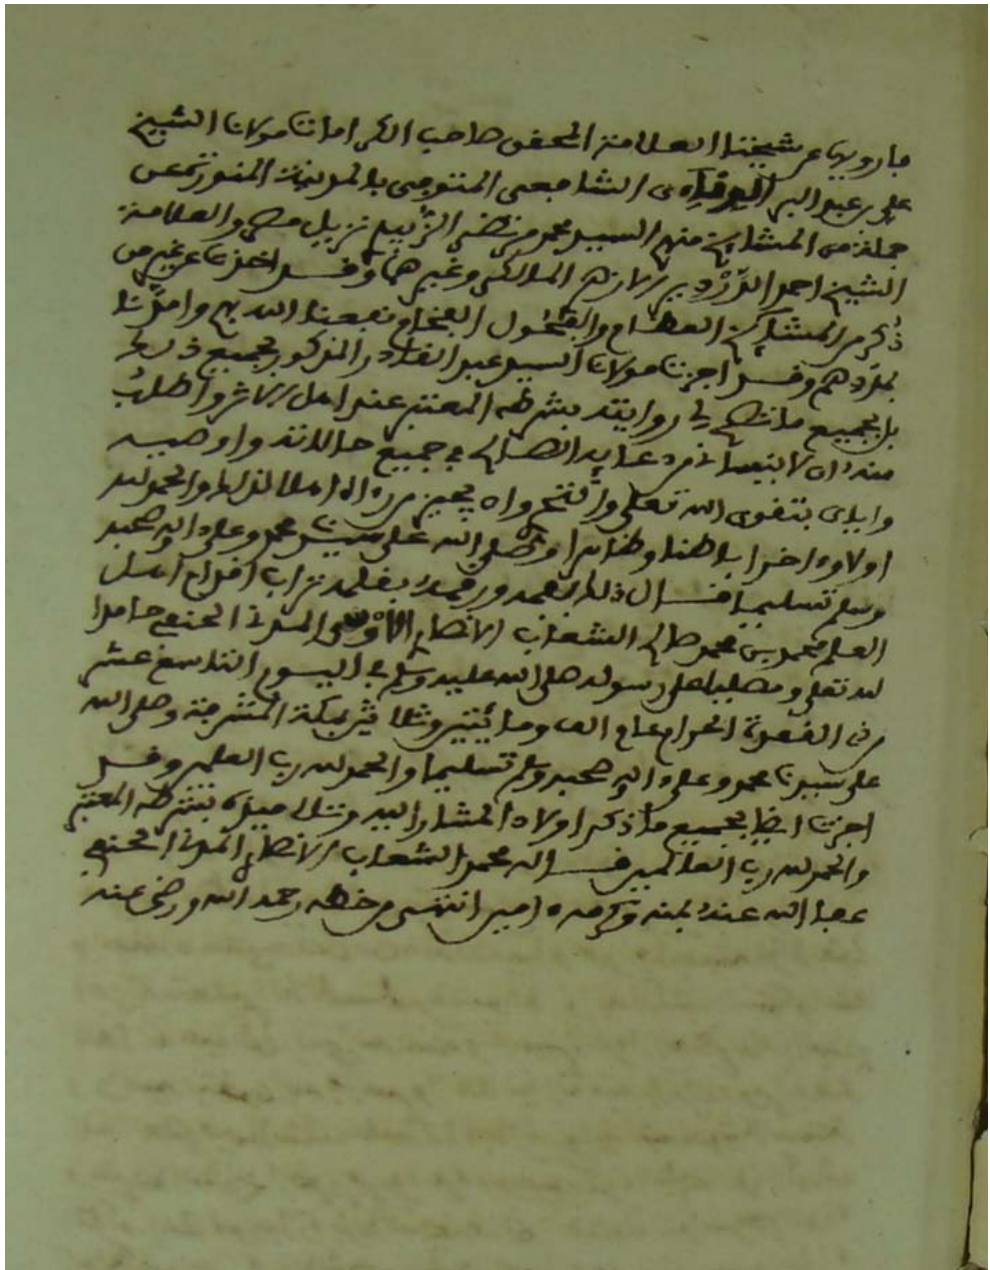 فارويها عن شيخنا العلامة المحقق صاحب الكرامات مولانا الشيخ
علي بن عبد البر الونائي الشافعي المتوفى بالمدينة المنورة عن
جملة من المشايخ منهم السيد محمد مرتضى الزبيدي نزيل مصر والعلامة
الشيخ احمد الدردير الازهري المالكي وغيرهما وقد اخذنا عن غير من
ذكر من المشايخ العظام والفحول الفخام نفعنا الله بهم وامدنا
بمددهم وقد اجزت مولانا السيد عبد القادر المذكور بجميع ذلك
بل بجميع ما تصح لي روايته بشرطه المعتبر عند اهل الاثر واطلب
منه ان لا ينساني من دعائه الصالح في جميع حالاته واوصيه
واياي بتقوى الله تعلى وان يجيز من راه اهلا لذلك والحمد لله
اولا واخرا باطنا وظاهرا وصلى الله على سيدنا محمد وعلى اله وصحبه
وسلم تسليما قال ذلك بفمه ورقمه بقلمه تراب اقدام اهل
العلم محمد بن محمد صالح الشعاب الانصاري المدني الحنفي حامدا
لله تعلى ومصليا على رسوله صلى الله عليه وسلم في اليوم التاسع عشر
من ذي القعدة الحرام عام الف ومائتين وثلاثين بمكة المشرفة وصلى الله
على سيدنا محمد وعلى اله وصحبه وسلم تسليما والحمد لله رب العلمين وقد
اجزت ايضا بجميع ما ذكر اولاد المشار اليه وتلاميذه بشرطه المعتبر
والحمد لله رب العالمين قاله محمد الشعاب الانصاري المدني الحنفي
عفا الله عنه بمنه وكرمه امين انتهى من خطه رحمه الله ورضي عنه